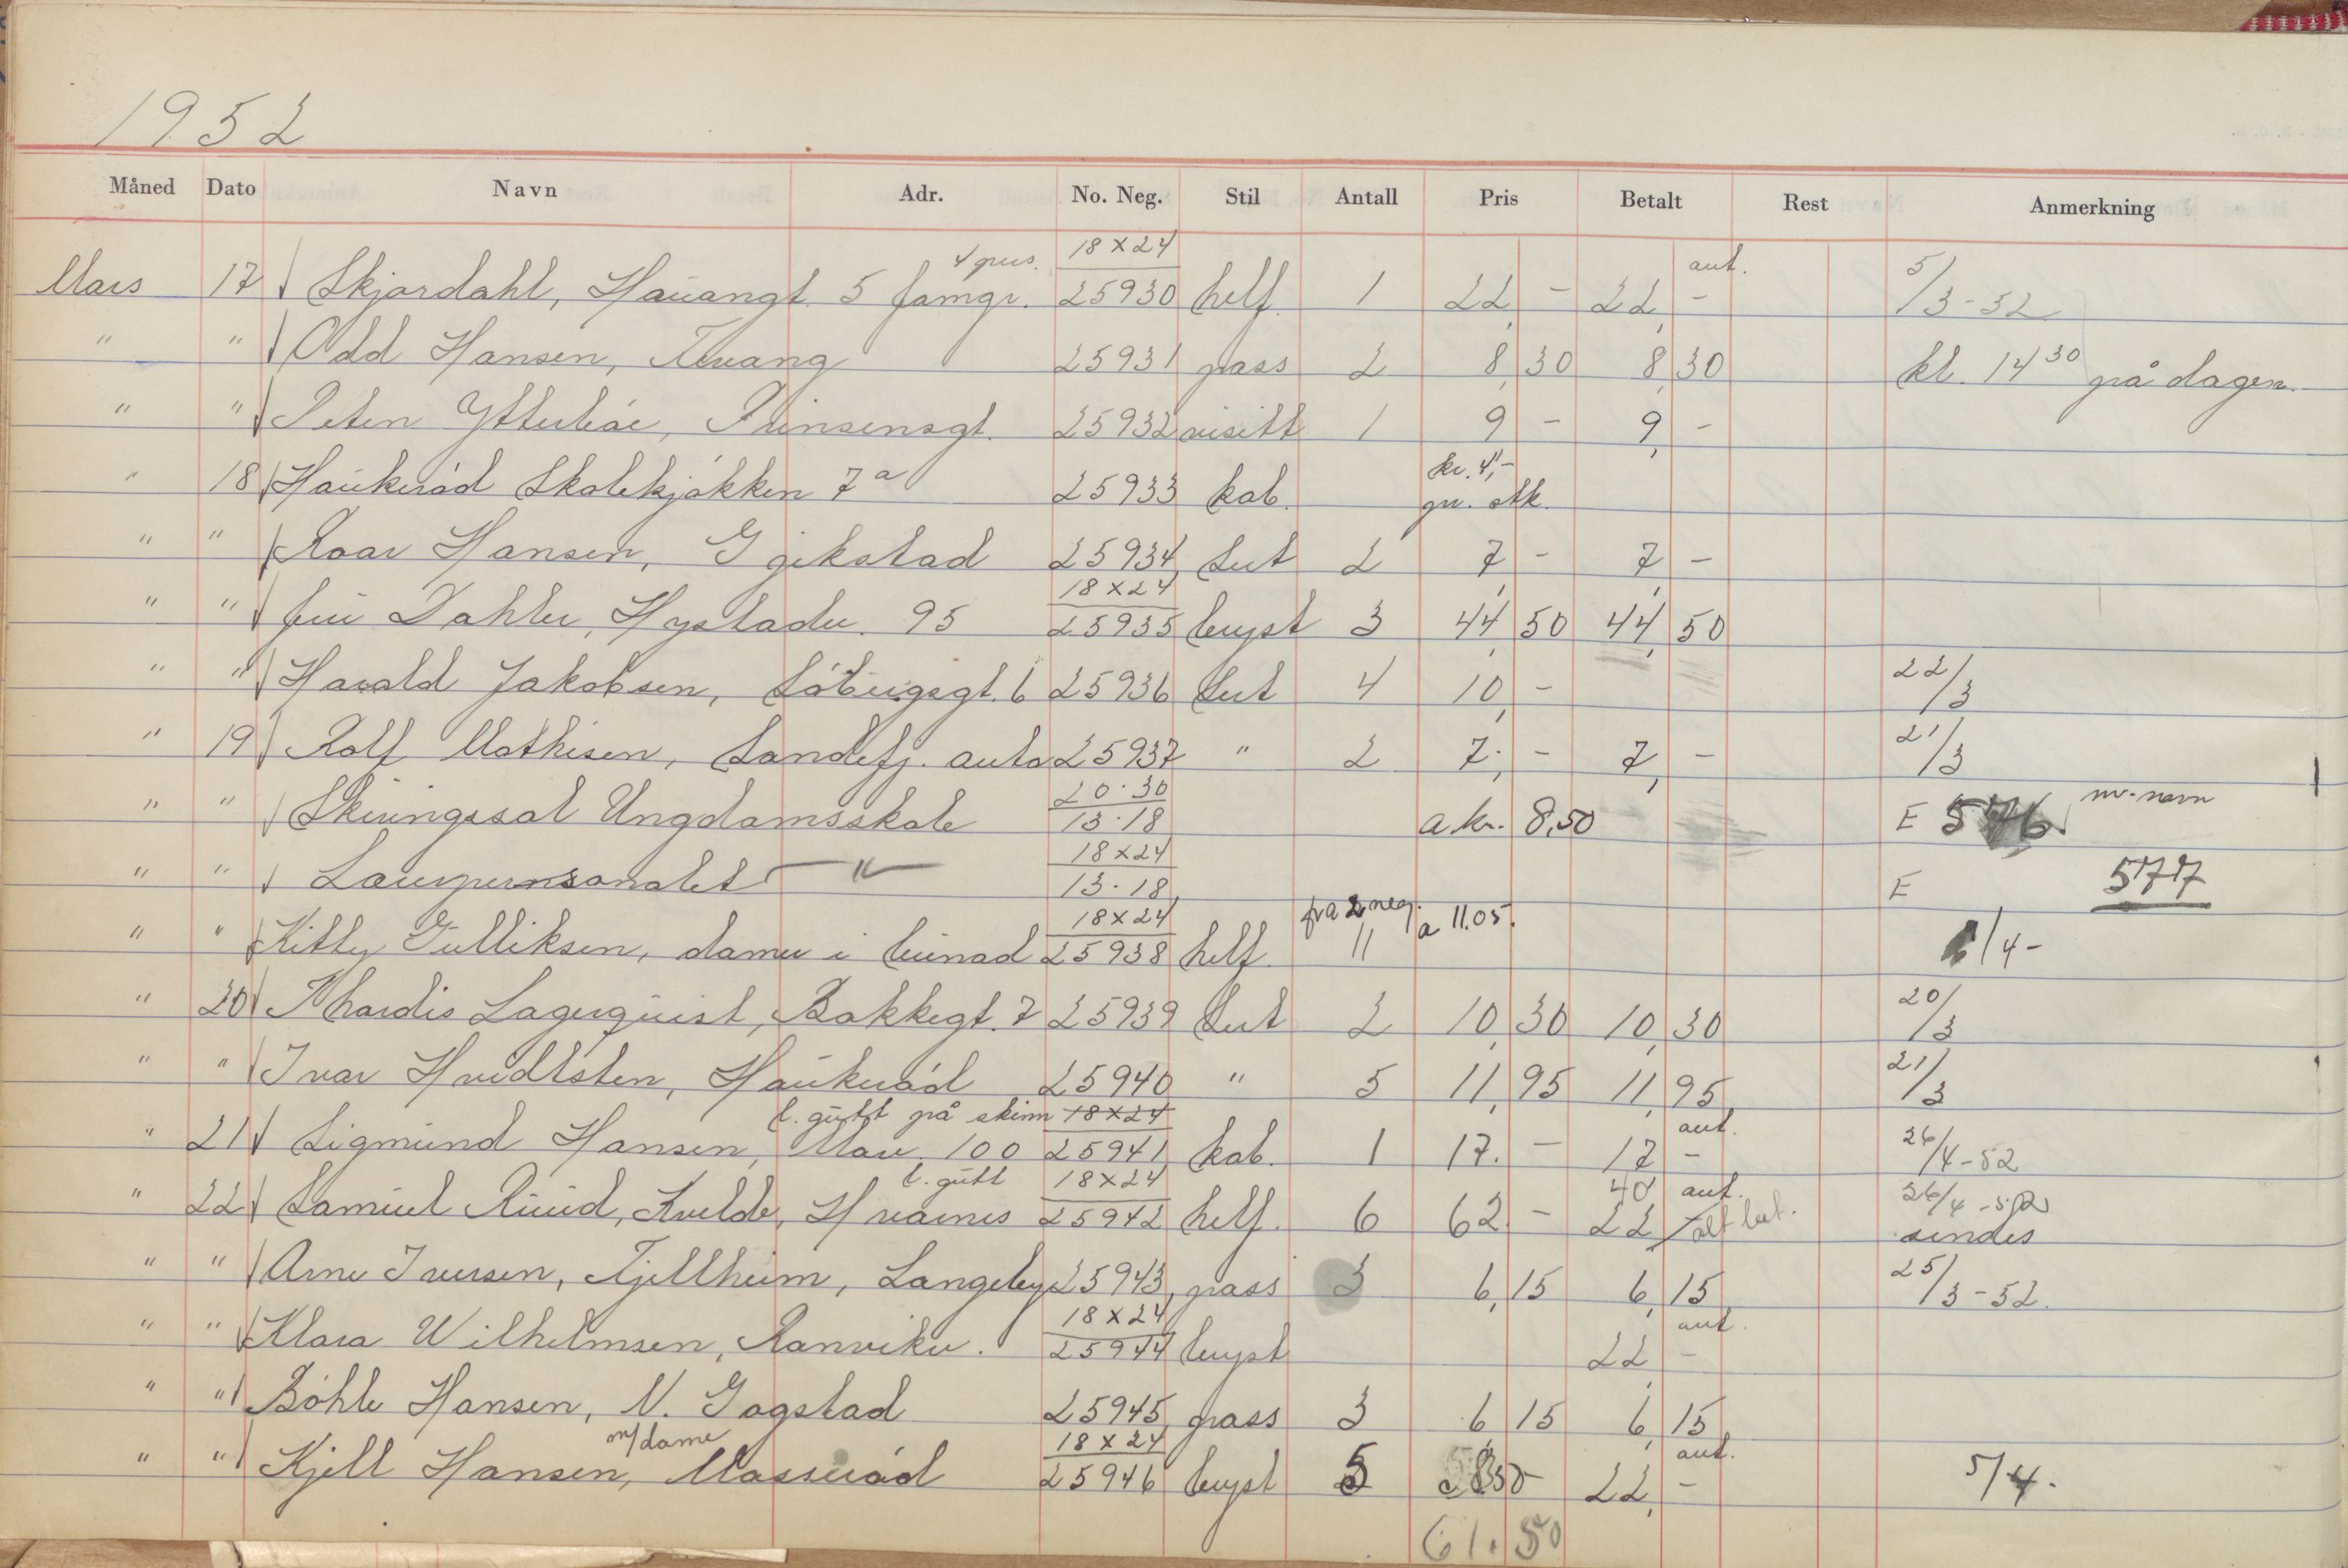 1952
Måned Dato Navn Adr. No. Neg. Stil Antall Pris Betalt Rest Anmerkning
4 pers. 18 x 24 ant.
Mars 17 Skjærdahl, Hauangt. 5 famgr. 25930 helf. 1 22,- 22,- 5/3-52
" " Odd Hansen, Tevang 25931 pass 2 8,30 8,30 kl. 14 30 på dagen
" " Peten Ytterbøe, Prinsensgt. 25932 visitt 1 9 - 9,-
" 18 Haukerød Skolekjøkken 7a 25933 kab. kr. 4,- pr. stk.
" " Roar Hansen, Gjekstad 25934 Sut 2 7,- 7,-
18 x 24
" " fru Dahler, Hystadv. 95 25935 byst 3 44,50 44,50
" " Harald Jakobsen, Sóbergsgt. 6 25936 Sut 4 10,- 22/3
" 19 Rolf Mathisen, Sandefj. auto 25937 " 2 7,- 7,- 21/3
20.30
" " Skiringssal Ungdomsskole 13.18 a kr. 8,50 E 576 nr. navn
18 x 24
" " Lærerpersonalet " 13.18 E 577
18 x 24 fra 2 neg.
" " Kitty Gulliksen, damer i bunad 25938 helf. 11 a 11.05. /4-
" 20 Thordis Lagerquist, Bakkegt. 7 25939 Sut 2 10,30 10,30 20/3
" " Ivar Hvidtsten, Haukerød 25940 " 5 11,95 11,95 21/3
l. gutt på skinn 18 x 24 ant.
" 21 Sigmund Hansen, Mov. 100 25941 kab. 1 17.- 17 - 26/4-52
l. gutt 18 x 24 40 ant.
" 22 Samuel Ruud, Kvelde, Hvarnes 25942 helf. 6 62 - 22 alt bet. 26/4-52 sendes
" " Arne Iversen, Fjellheim, Langeby 25943, pass 3 6,15 6,15 25/3-52.
18 x 24 ant.
" " Klara Wilhelmsen, Ranvikv. 25944 byst 22,-
" " Bøhle Hansen, N. Gogstad 25945, pass 3 6,15 6,15
m/dame 18 x 24 ant.
" " Kjell Hansen, Masserød 25946 byst 5 22,- 5/4.
61.50